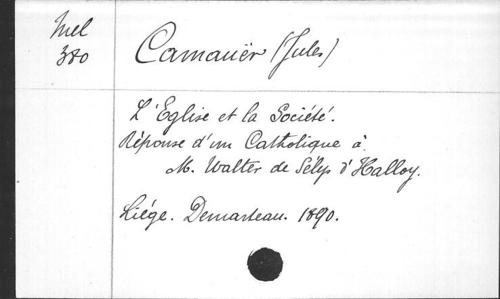 Mel
380
Camauër (Jules)
L'Eglise et la Société.
Réponse d'un Catholique à
M. Walter de Sélys d'Halloy.
Liége. Demarteau. 1890.